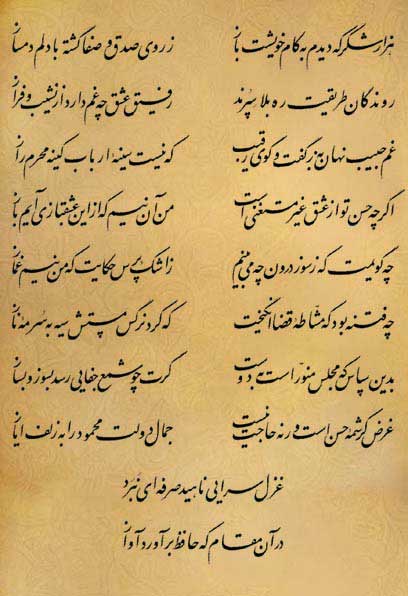 هزار شکر که دیدم به کام خویشت باز ز روی صدق و صفا گشته با دلم دمساز
روندگان طریقت ره بلا سپرند رفیق عشق چه غم دارد از نشیب و فراز
غم حبیب نهان به ز گفت و گوی رقیب که نیست سینهٔ ارباب کینه محرم راز
اگر چه حسن تو از عشق غیر مستغنی است من آن نیم که از این عشقبازی آیم باز
چه گویمت که ز سوز درون چه می بینم ز اشک پرس حکایت که من نیم غماز
چه فتنه بود که مشاطهٔ قضا انگیخت که کرد نرگس مستش سیه به سرمه ناز
بدین سپاس که مجلس منور است به دوست گرت چو شمع جفایی رسد بسوز و بساز
غرض کرشمهٔ حسن است ور نه حاجت نیست جمال دولت محمود را به زلف ایاز
غزل سرایی ناهید صرفه ای نبرد
در آن مقام که حافظ برآورد آواز